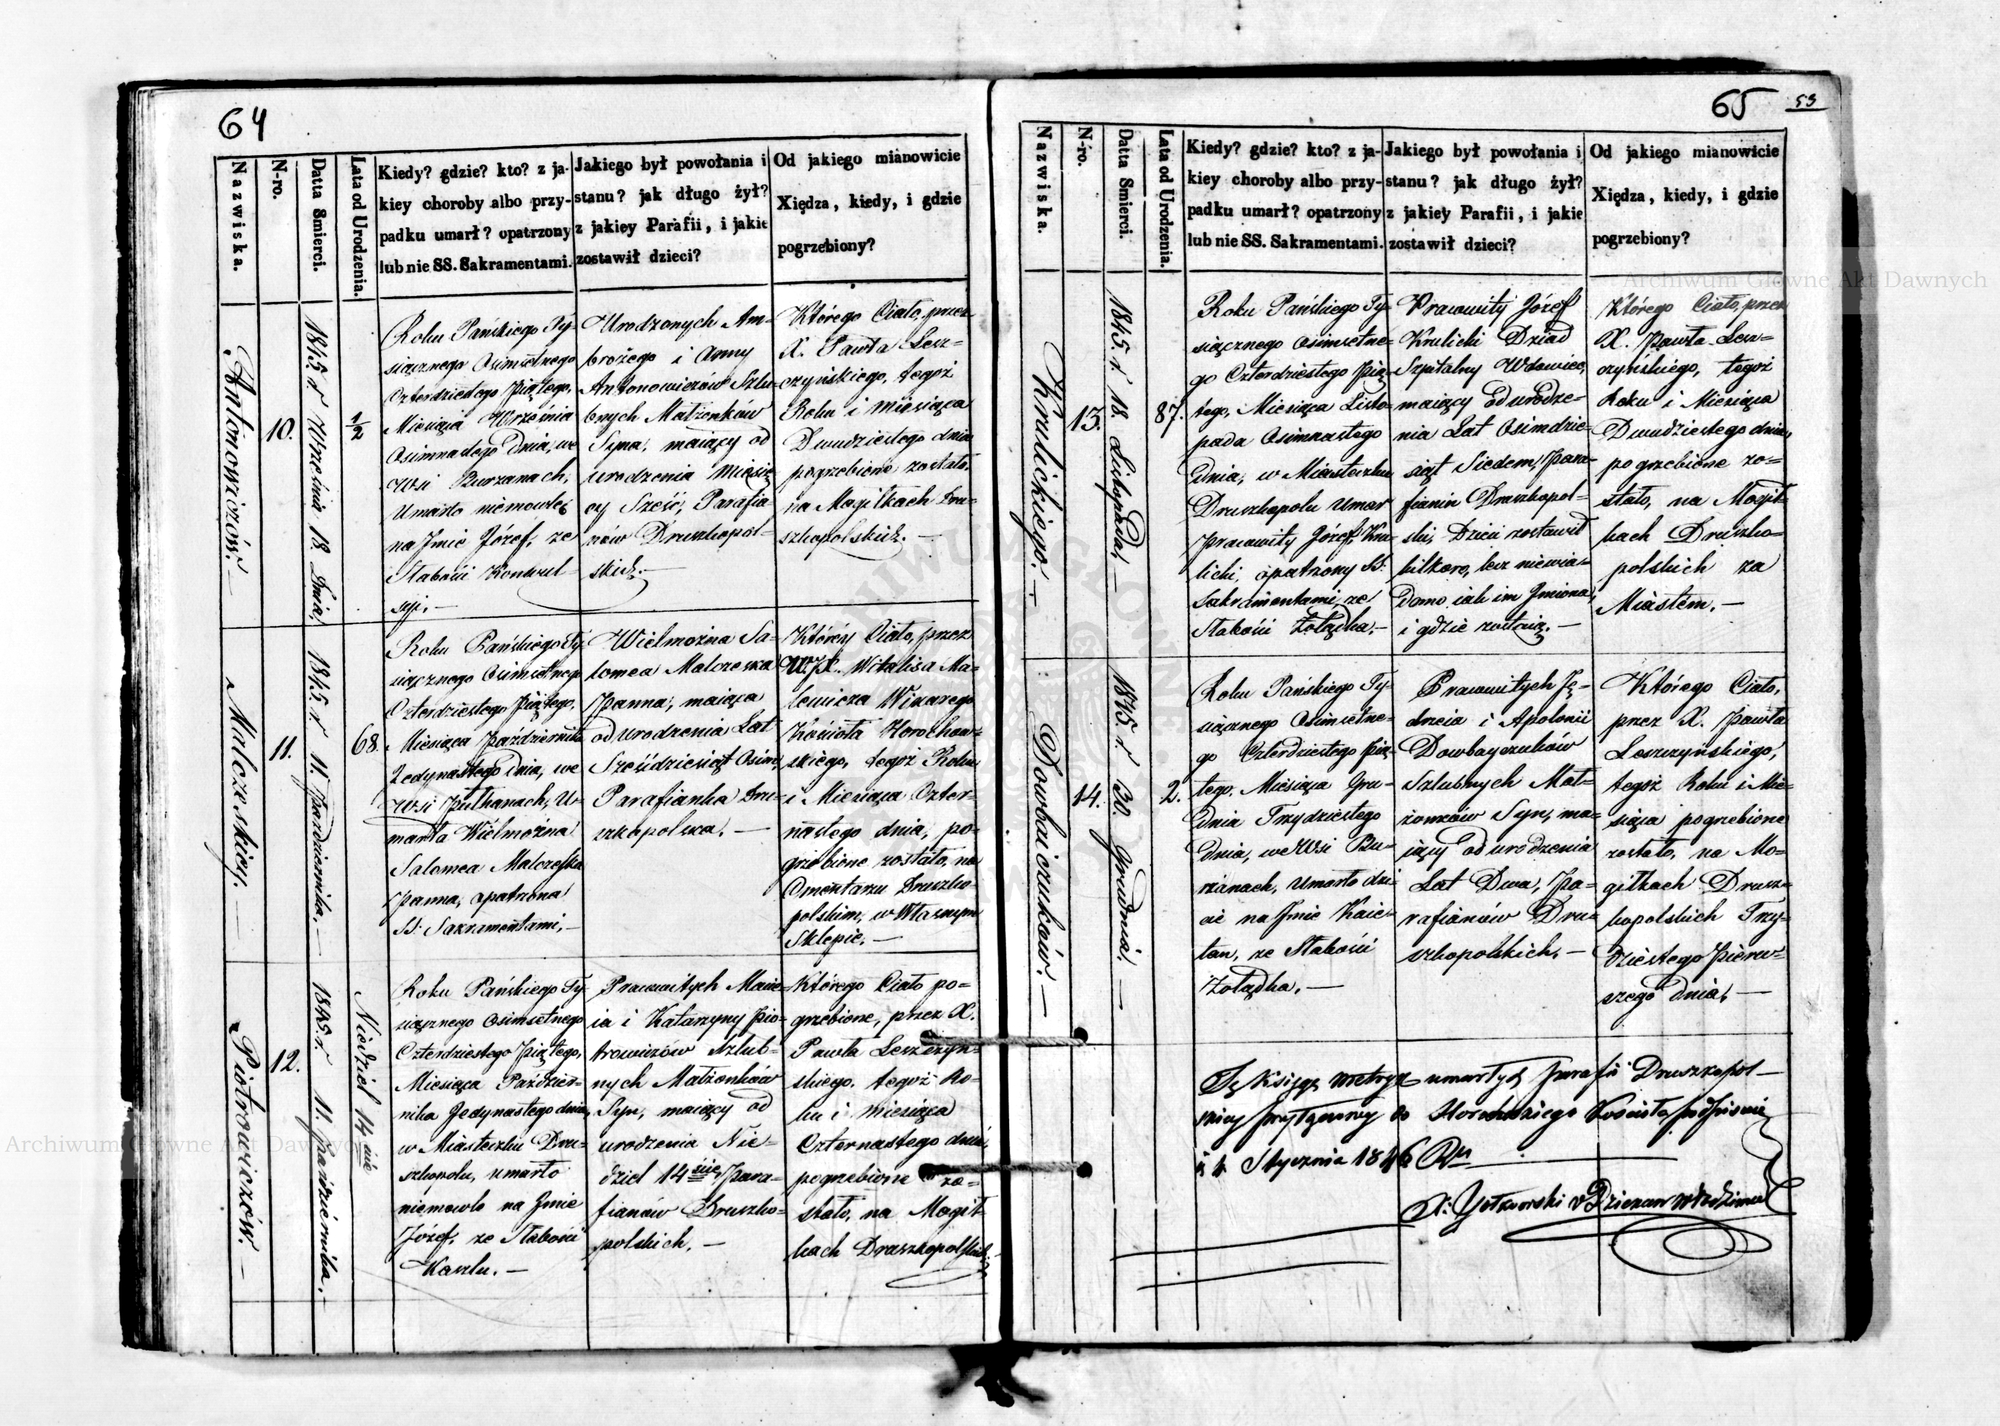 64
Nazwiska.
N-ro.
Datta Smierci.
Lata od Urodzenia.
Kiedy? gdzie? kto? z ja-
kiey choroby albo przy-
padku umarł? opatrzony
lub nie SS. Sakramentami.
Jakiego był powołania i
stanu? jak długo żył?
z jakiey Parafii, i jakie
zostawił dzieci?
Od jakiego mianowicie
Xiędza, kiedy, i gdzie
pogrzebiony?
Antonowiczów. —
10.
1845 r. Września 18 Dnia.
1/2
Roku Pańskiego Ty-
siącznego Osimsetnego
Czterdziestego Piątego,
Miesiąca Września
Osimnastego Dnia, we
Wsi Burzanach,
Umarło niemowlę
na Jmie Józef, ze
Słabości Konwul-
syi. —
Urodzonych Am-
brożego i Anny
Antonowiczów Szlu-
bnych Małżonków
Syna, maiący od
urodzenia Miesię-
cy Sześć, Parafia-
nów Druszkopol-
skich. —
Którego Ciało, przez
X. Pawła Lesz-
czyńskiego, tegoż
Roku i Miesiąca
Dwudziestego dnia
pogrzebione zostało,
na Mogiłkach Dru-
szkopolskich. —
Malczeskiey. —
11.
1845 r. 11. Października. —
68.
Roku Pańskiego Ty-
siącznego Osimsetnego
Czterdziestego Piątego,
Miesiąca Października
Jedynastego Dnia, we
Wsi Pułhanach, U-
marła Wielmożna
Salomea Malczeska
Panna, opatrzona
SS. Sakramentami. —
Wielmożna Sa-
lomea Malczeska
Panna, maiąca
od urodzenia Lat
Sześćdziesiąt Osim,
Parafianka Dru-
szkopolska. —
Którey Ciało, przez
W. JX. Witalisa Ma-
lewicza Wikarego
Kościoła Horochow-
skiego, tegoż Roku
i Miesiąca Czter-
nastego dnia, po-
grzebione zostało, na
Cmentarzu Druszko-
polskim, w Własnym
Sklepie. —
Piotrowiczów. —
12.
1845 r. 11. Października. —
Niedziel 14cie
Roku Pańskiego Ty-
siącznego Osimsetnego
Czterdziestego Piątego,
Miesiąca Paździer-
nika Jedynastego dnia,
w Miasteczku Dru-
szkopolu, umarło
niemowle na Jmie
Józef, ze Słabości
Kaszlu. —
Pracowitych Macie-
ia i Katarzyny Pio-
trowiczów Szlub-
nych Małżonków
Syn, maiący od
urodzenia Nie-
dziel 14cie, Para-
fianów Druszko-
polskich. —
Którego Ciało po-
grzebione, przez X.
Pawła Leszczyń-
skiego, tegoż Ro-
ku i miesiąca
Czternastego dnia,
pogrzebione zo-
stało, na Mogił-
kach Druszkopolskich. —
65
53
Nazwiska.
N-ro.
Datta Smierci.
Lata od Urodzenia.
Kiedy? gdzie? kto? z ja-
kiey choroby albo przy-
padku umarł? opatrzony
lub nie SS. Sakramentami.
Jakiego był powołania i
stanu? jak długo żył?
z jakiey Parafii, i jakie
zostawił dzieci?
Od jakiego mianowicie
Xiędza, kiedy, i gdzie
pogrzebiony?
Krulickiego. —
13.
1845. r. 18. Listopada. —
87.
Roku Pańskiego Ty-
siącznego Osimsetne-
go Czterdziestego Pią-
tego, Miesiąca Listo-
pada Osimnastego
Dnia, w Miasteczku
Druszkopolu Umar
Pracowity Józef Kru-
licki, opatrzony SS.
Sakramentami, ze
Słabości Żołądka. —
Pracowity Józef
Krulicki Dziad
Szpitalny Wdowiec,
maiący od urodze-
nia Lat Osimdzie-
siąt Siedem, Para-
fianin Druszkopol-
ski, Dzieci zostawił
kilkoro, lecz niewia-
domo iak im Jmiona,
i gdzie zostaią. —
Którego Ciało, przez
X. Pawła Lesz-
czyńskiego, tegoż
Roku i Miesiąca
Dwudziestego dnia,
pogrzebione zo-
stało, na Mogił-
kach Druszko-
polskich za
Miastem. —
Dowbaiczuków. —
14.
1845 r. 30. Grudnia. —
2.
Roku Pańskiego Ty-
siącznego Osimsetne-
go Czterdziestego Pią-
tego, Miesiąca Gru-
dnia Trzydziestego
Dnia, we Wsi Bu-
rzanach, Umarło dzi-
cie na Jmie Kaie-
tan, ze Słabości
Żołądka. —
Pracowitych Ję-
drzeia i Apolonii
Dowbayczuków
Szlubnych Mał-
żonków Syn, ma-
iący od urodzenia
Lat Dwa, Pa-
rafianów Dru-
szkopolskich. —
Którego Ciało,
przez X. Pawła
Leszczyńskiego,
tegoż Roku i Mie-
siąca pogrzebione
zostało, na Mo-
giłkach Drusz-
kopolskich Trzy-
dziestego Pierw-
szego dnia. —
Tę Księgę metryk umarłych Parafii Druszkopol-
skiey do Kościoła
Stycznia 1846
Archiwum Główne Akt Dawnych
Archiwum Główne Akt Dawnych